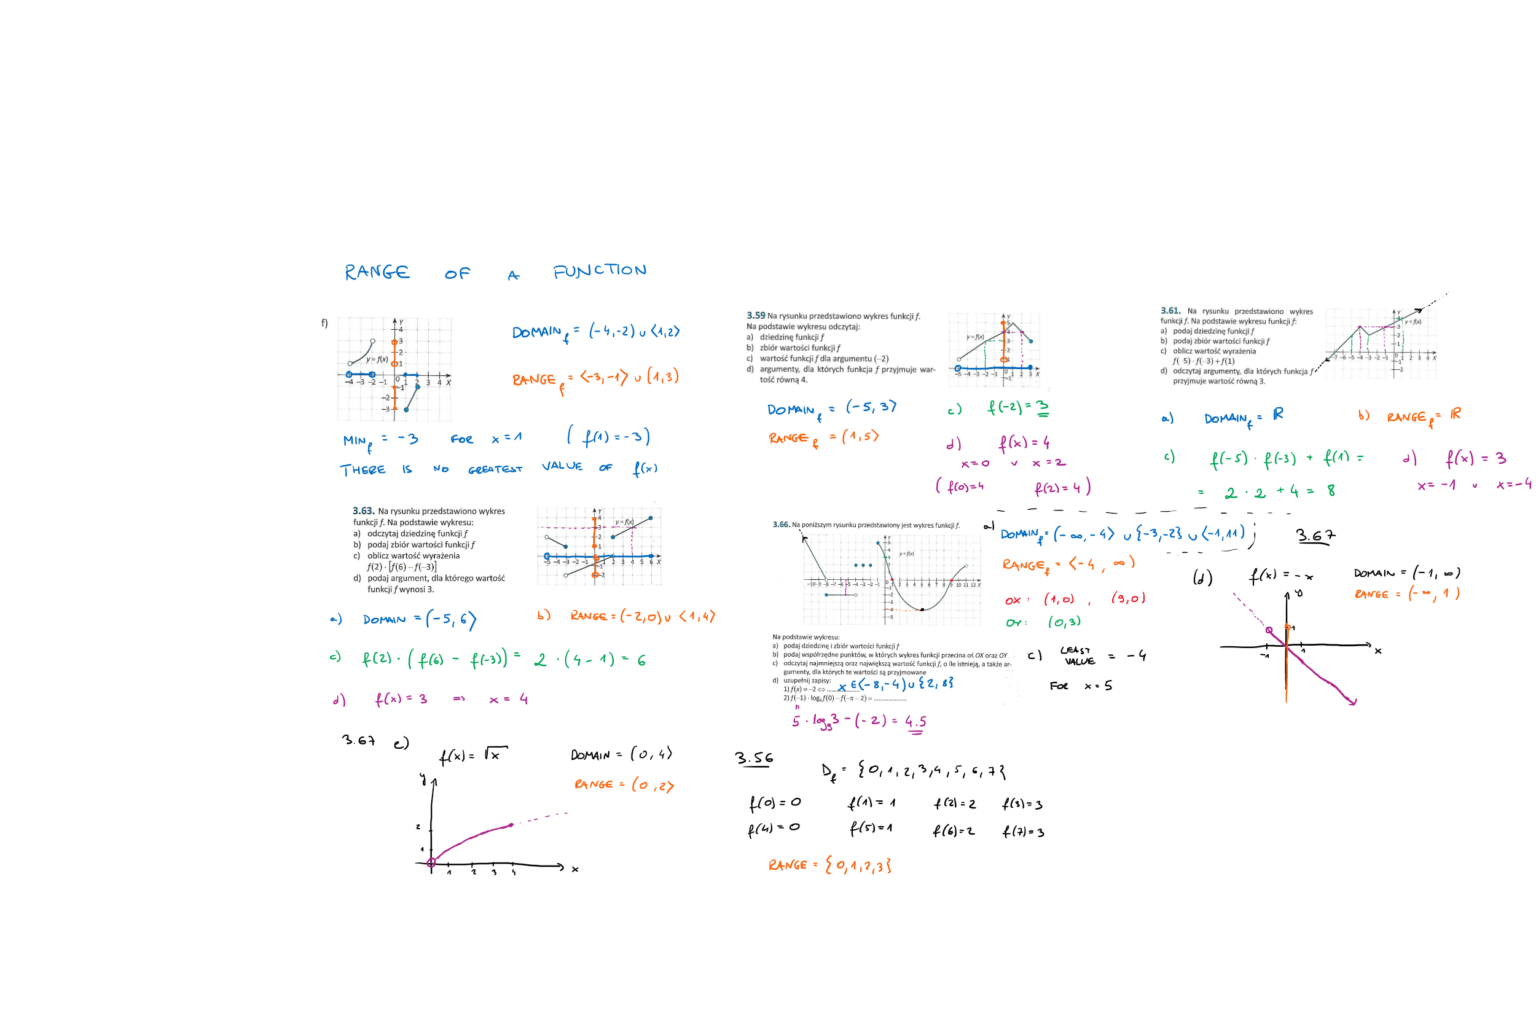 RANGE OF A FUNCTION
f)
y=f(x)
DOMAIN_f = (-4,-2) ∪ <1,2>
RANGE_f = <-3,-1> ∪ (1,3)
MIN_f = -3 FOR x=1 ( f(1)=-3 )
THERE IS NO GREATEST VALUE OF f(x)
3.63. Na rysunku przedstawiono wykres
funkcji f. Na podstawie wykresu:
a) odczytaj dziedzinę funkcji f
b) podaj zbiór wartości funkcji f
c) oblicz wartość wyrażenia
f(2) · [f(6) – f(–3)]
d) podaj argument, dla którego wartość
funkcji f wynosi 3.
y=f(x)
a) DOMAIN = (-5,6>
b) RANGE = (-2,0) ∪ <1,4>
c) f(2) · ( f(6) - f(-3) ) = 2 · (4 - 1) = 6
d) f(x) = 3 => x = 4
3.67 e)
f(x) = √x
DOMAIN = (0,4>
RANGE = (0,2>
y
2
1
1 2 3 4 x
3.59 Na rysunku przedstawiono wykres funkcji f.
Na podstawie wykresu odczytaj:
a) dziedzinę funkcji f
b) zbiór wartości funkcji f
c) wartość funkcji f dla argumentu (–2)
d) argumenty, dla których funkcja f przyjmuje war-
tość równą 4.
y=f(x)
DOMAIN_f = (-5,3>
RANGE_f = (1,5>
c) f(-2) = 3
d) f(x) = 4
x=0 ∨ x=2
( f(0)=4 f(2)=4 )
3.66. Na poniższym rysunku przedstawiony jest wykres funkcji f.
y=f(x)
Na podstawie wykresu:
a) podaj dziedzinę i zbiór wartości funkcji f
b) podaj współrzędne punktów, w których wykres funkcji przecina oś OX oraz OY
c) odczytaj najmniejszą oraz największą wartość funkcji f, o ile istnieją, a także ar-
gumenty, dla których te wartości są przyjmowane
d) uzupełnij zapisy:
1) f(x) = –2 ⇔ ... x ∈ (-8,-4) ∪ {2,8}
2) f(–1) · log₉ f(0) – f(–π – 2) = ...............
5 · log₉3 - (-2) = 4.5
a) DOMAIN_f = (-∞,-4> ∪ {-3,-2} ∪ <-1,11) ;
RANGE_f = <-4, ∞)
OX: (1,0) , (9,0)
OY: (0,3)
c) LEAST VALUE = -4
FOR x=5
3.56
D_f = {0,1,2,3,4,5,6,7}
f(0)=0 f(1)=1 f(2)=2 f(3)=3
f(4)=0 f(5)=1 f(6)=2 f(7)=3
RANGE = {0,1,2,3}
3.61. Na rysunku przedstawiono wykres
funkcji f. Na podstawie wykresu funkcji f:
a) podaj dziedzinę funkcji f
b) podaj zbiór wartości funkcji f
c) oblicz wartość wyrażenia
f(–5) · f(–3) + f(1)
d) odczytaj argumenty, dla których funkcja f
przyjmuje wartość równą 3.
y=f(x)
a) DOMAIN_f = ℝ
b) RANGE_f = ℝ
c) f(-5) · f(-3) + f(1) =
= 2 · 2 + 4 = 8
d) f(x) = 3
x=-1 ∨ x=-4
3.67
(d) f(x) = -x
DOMAIN = (-1,∞)
RANGE = (-∞,1)
y
1
-1 1 x